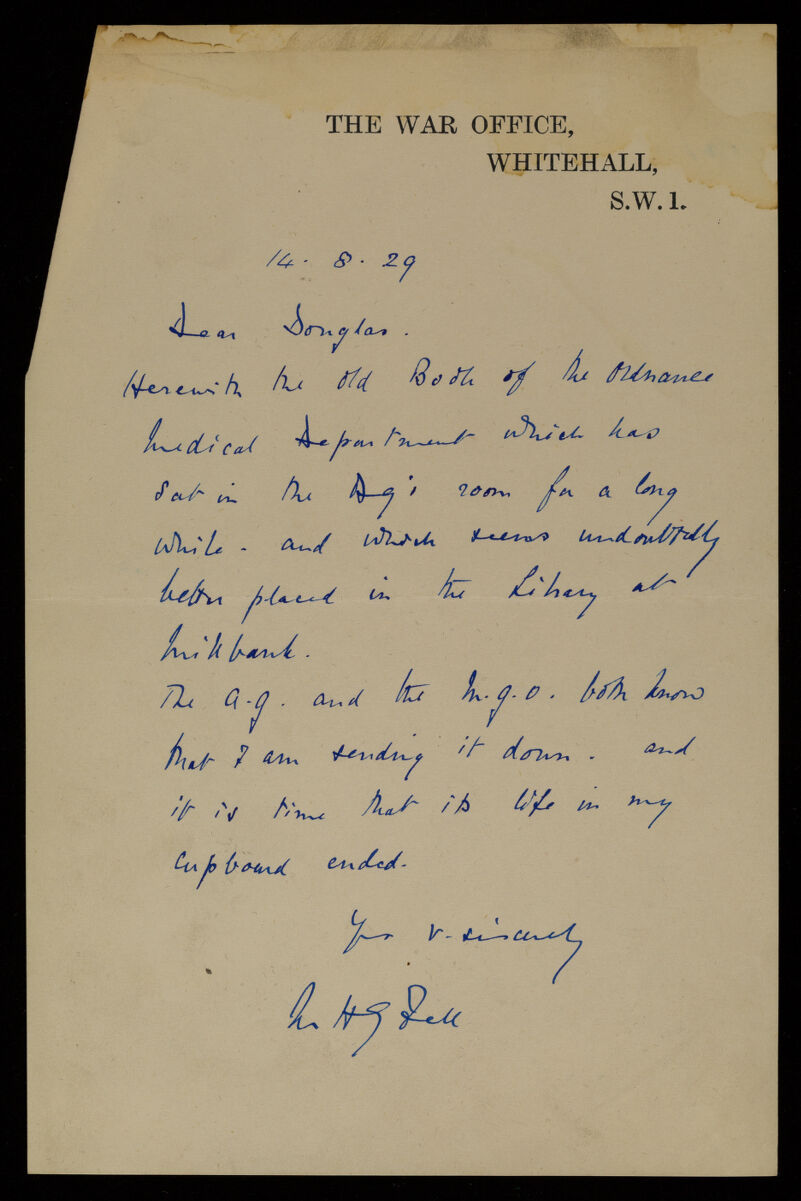 THE WAR OFFICE,
WHITEHALL,
S.W. 1.
14 · 8 · 29
Dear Douglas.
Herewith the old Book of the Ordnance
Medical Department which has
sat in the D-g's room for a long
while - and which seems undoubtedly
better placed in the Library at
Millbank.
The A.g. and the M.g.o. both know
that I am sending it down - and
it is time that its life in my
cupboard ended.
Yrs v. sincerely
M H G Fell